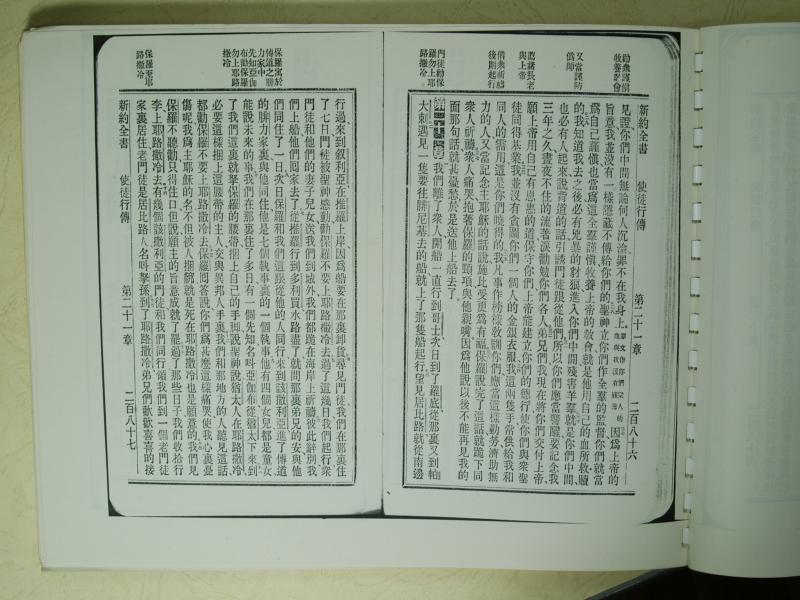 勸衆謹愼
牧養敎會
又當謹防
僞師
薦諸長老
與上帝
偕衆祈禱
後則起行
門徒勸保
羅勿上耶
路撒冷
新約全書 使徒行傳 第二十一章 二百八十六
見證你們中間無論何人沉淪罪不在我身上因爲上帝的
旨意我並沒有一樣隱藏不傳給你們的聖神立你們作全羣的監督你們就當
爲自己謹愼也當爲這全羣謹愼牧養上帝的敎會就是他用自己的血所救贖
的我知道我去之後必有兇暴的豺狼進入你們中間殘害羊羣就是你們中間
也必有人起來說背道的話引誘門徒跟從他們所以你們應當警醒要記念我
三年之久晝夜不住的流著淚勸勉你們各人弟兄們我現在將你們交付上帝
願上帝用自己有恩惠的道保守你們上帝能建立你們的德行使你們與衆聖
徒同得基業我並沒有貪圖你們一個人的金銀衣服我這兩手常供給我和
同人的需用這是你們曉得的我凡事作榜樣敎訓你們應當這樣勤勞濟助無
力的人又當記念主耶穌的話說施比受更爲有福保羅說完了這話就跪下同
衆人祈禱衆人痛哭抱著保羅的頸項與他親嘴因爲他說以後不能再見我的
面那句話就甚憂愁於是送他上船去了
第二十一章我們離了衆人開船一直行到哥士次日到了羅底從那裏又到帕
大喇遇見一隻要往腓尼基去的船就上了那隻船起行望見居比路就從南邊
保羅寓於
傳道之腓
力家中
先知亞伽
布勸保羅
勿上耶路
撒冷
保羅至耶
路撒冷
行過來到叙利亞在推羅上岸因爲船要在那裏卸貨尋見門徒我們在那裏住
了七日門徒被聖神感動勸保羅不要上耶路撒冷去過了這幾日我們起行衆
門徒和他們的妻子兒女送我們到城外我們都跪在海岸上祈禱彼此辭別我
們上船他們囘家去了從推羅行到多利買水路盡了就問那裏弟兄的安與他
們同住了一日次日保羅和我們這跟從他的人同行來到該撒利亞進了傳道
的腓力家裏與他同住他是七個執事裏的一個執事他有四個女兒都是童女
能說未來的事我們在那裏住了多日有一個先知名叫亞伽布從猶太下來到
了我們這裏就拏保羅的腰帶捆上自己的手脚說聖神說猶太人在耶路撒冷
必要這樣捆上這腰帶的主人交與異邦人手裏我們和那地方的人聽見這話
都勸保羅不要上耶路撒冷去保羅囘答說你們爲甚麽這樣痛哭使我心裏憂
傷呢我爲主耶穌的名不但被人捆綁就是死在耶路撒冷也是願意的我們見
保羅不聽勸只得住口但說願主的旨意成就了罷過了那些日子我們收拾行
李上耶路撒冷去有幾個該撒利亞的門徒和我們同行領我們到一個老門徒
家裏居住老門徒是居比路人名叫拏孫到了耶路撒冷弟兄們歡歡喜喜的接
新約全書 使徒行傳 第二十一章 二百八十七